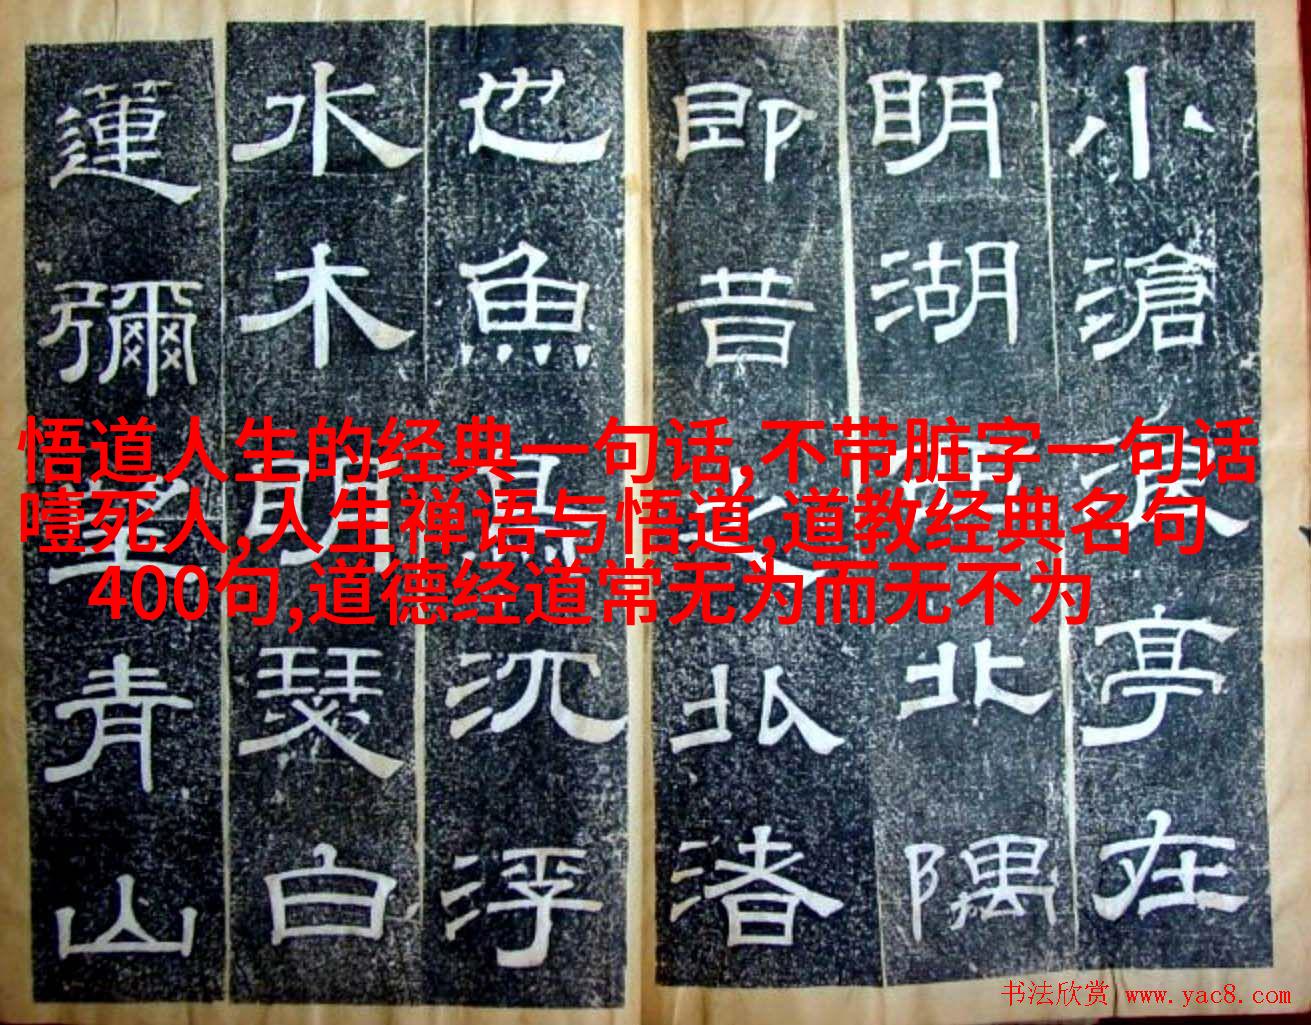 小滄浪亭在
明湖西北隅
即昔之北渚
也魚鳥沉浮
水木明瑟白
蓮彌望青山
悟道人生的经典一句话,不带脏字一句话
噎死人,人生禅语与悟道,道教经典名句
400句,道德经道常无为而无不为
书法欣赏 www.yac8.com